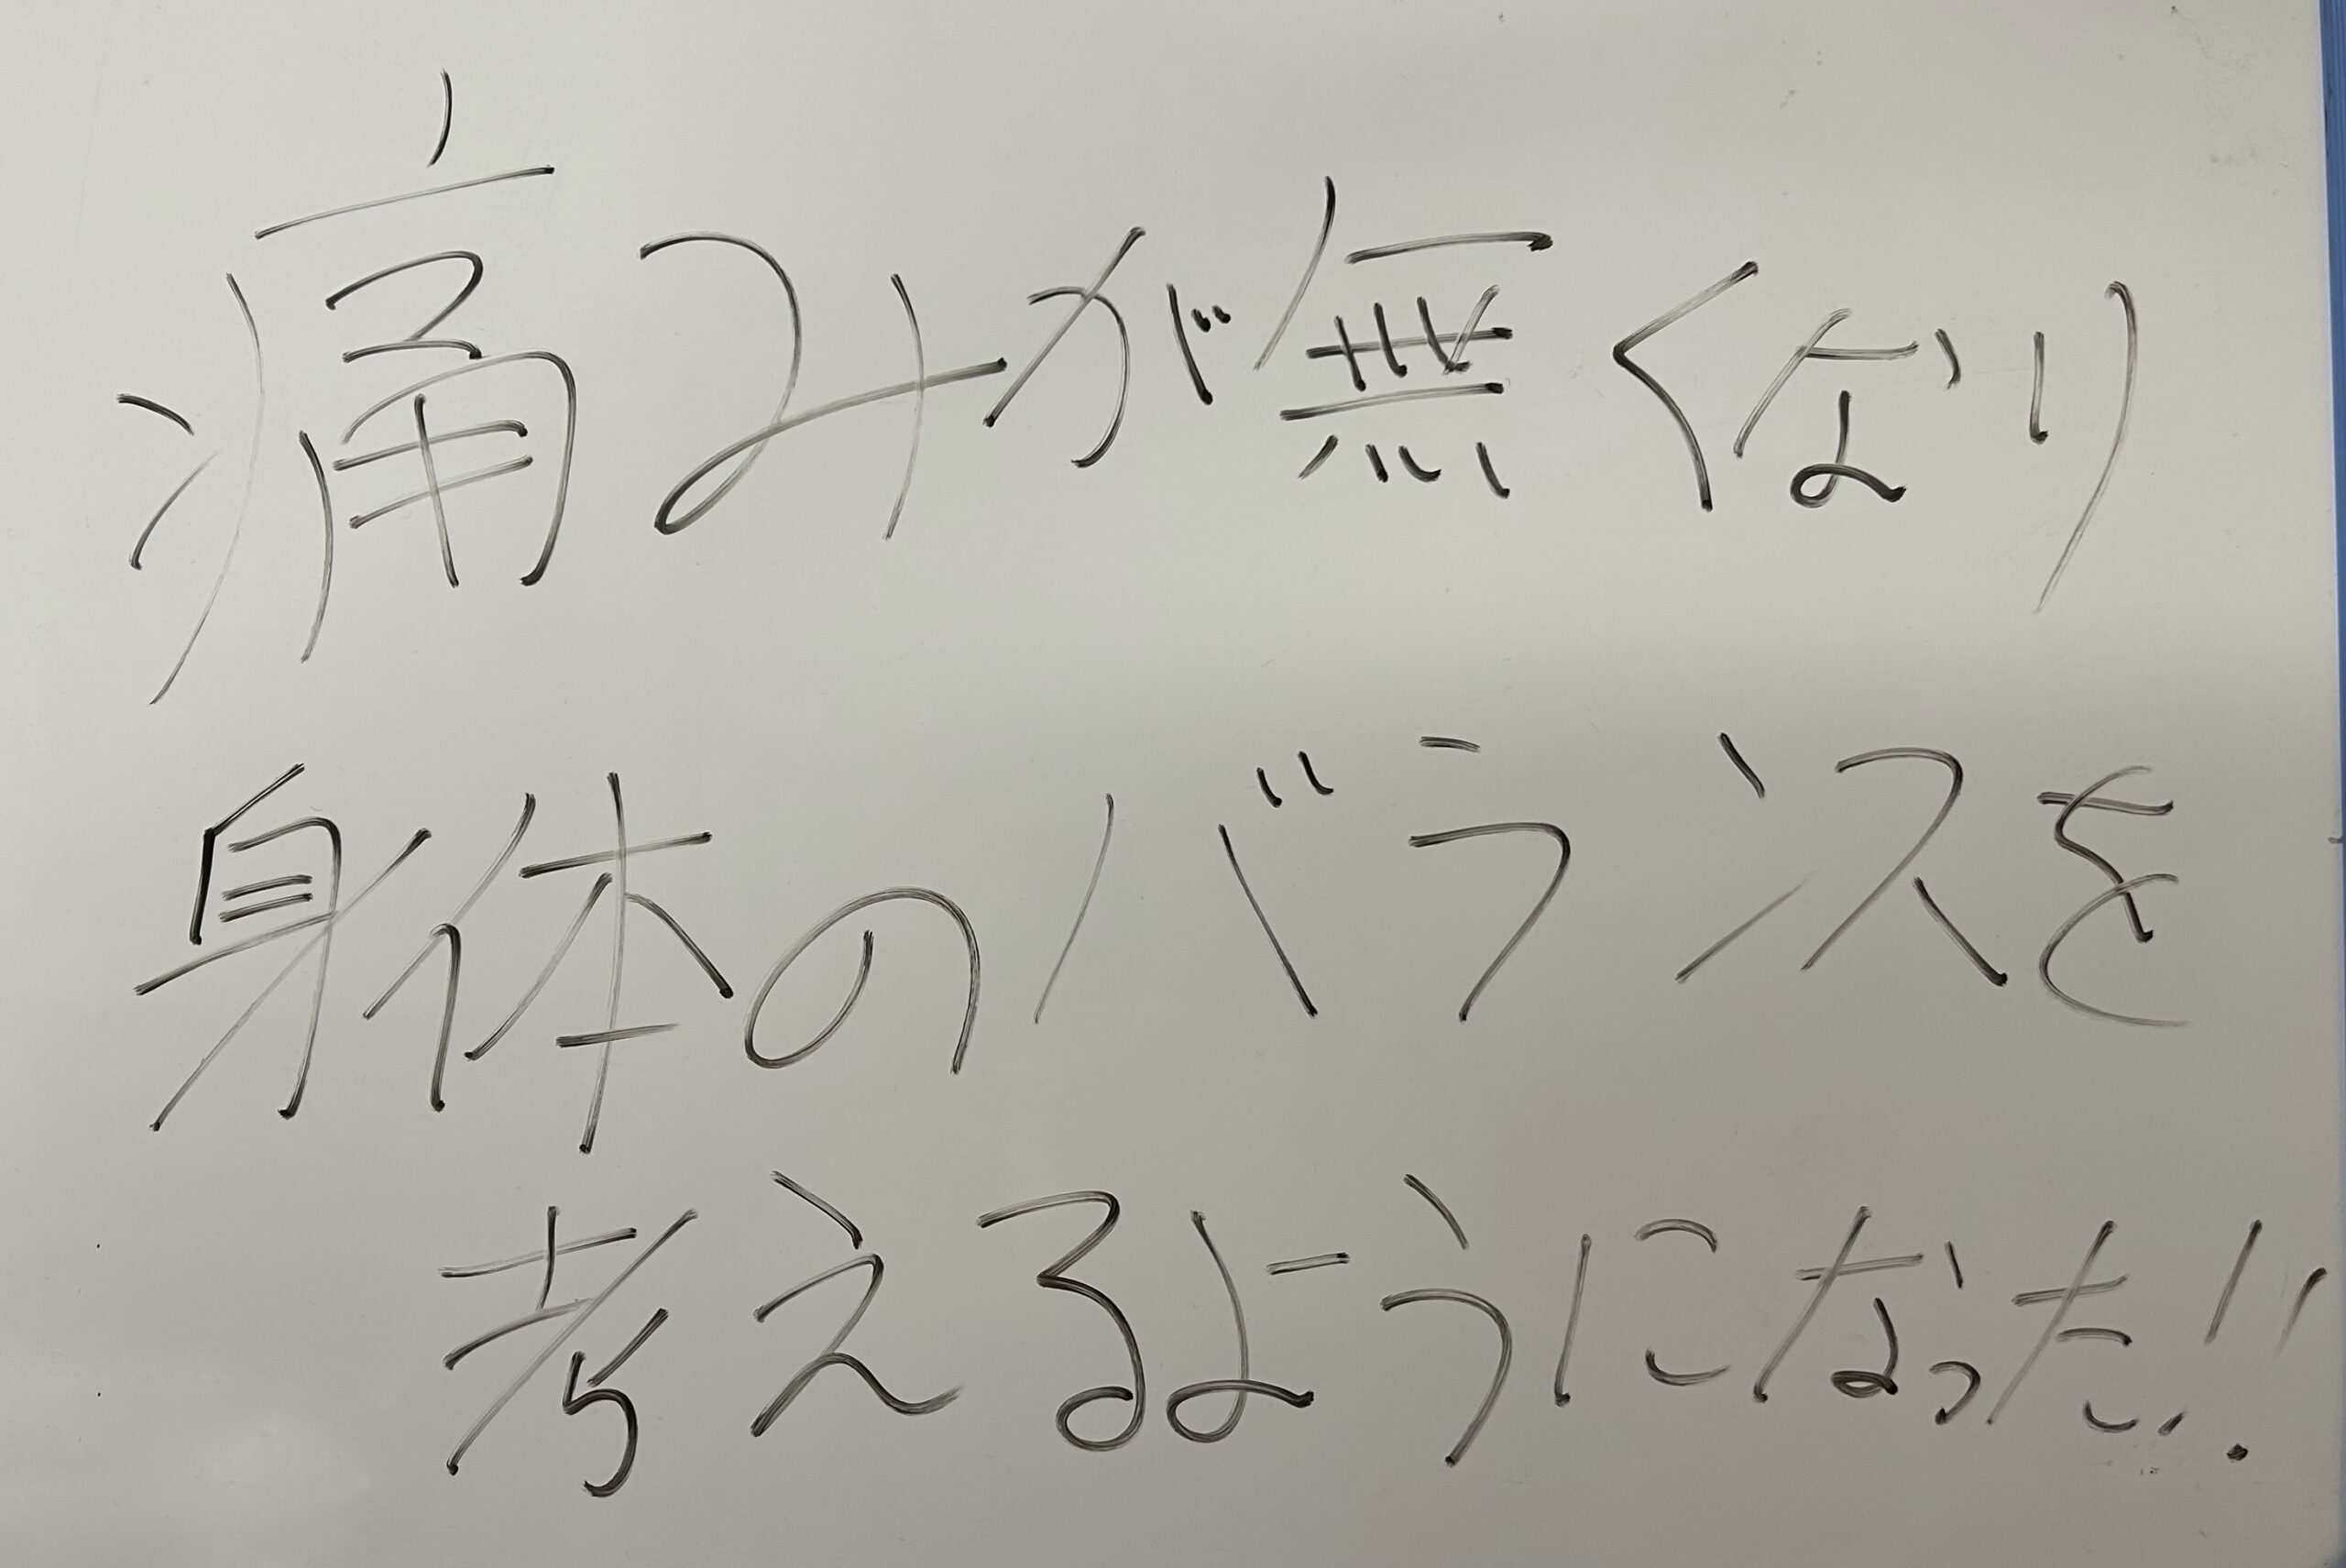 痛みが無くなり
身体のバランスを
考えるようになった!!